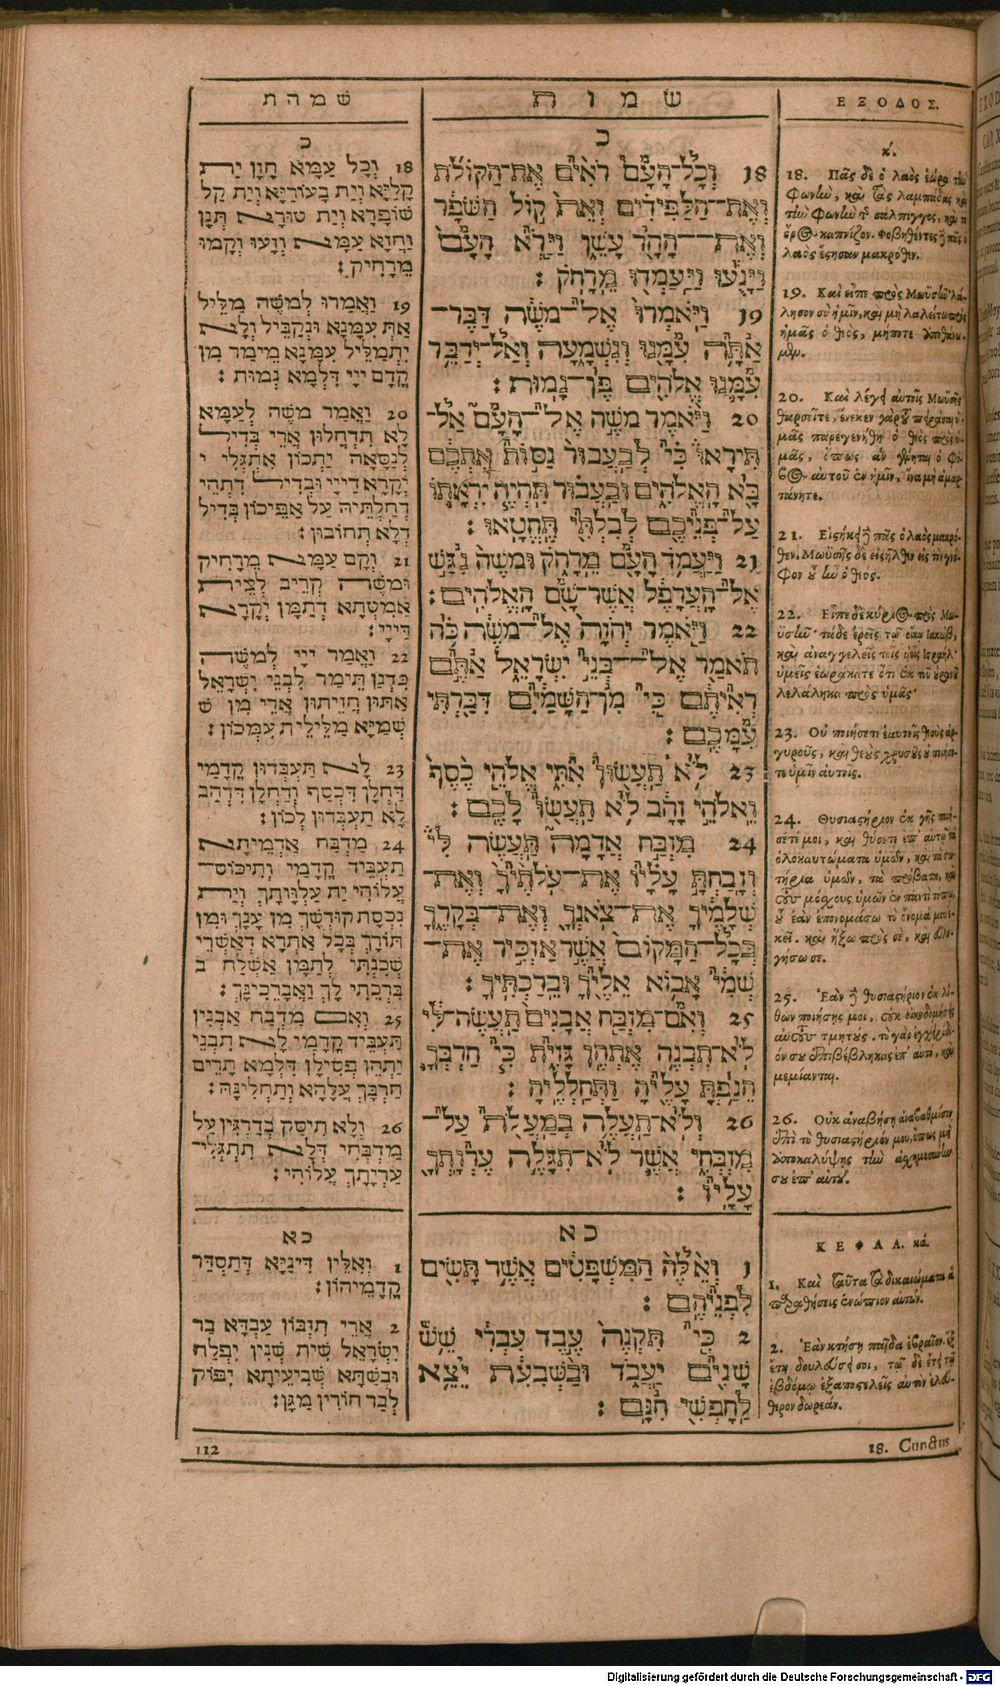 שמהת
כ
18 וְכָל עַמָּא חָזָן יָת
קָלַיָּא וְיָת בָּעוֹרַיָּא וְיָת קַל
שׁוֹפָרָא וְיָת טוּרָא תְּנָן
וַחֲזָא עַמָּא וְזָעוּ וְקָמוּ
מֵרָחִיק׃
19 וַאֲמַרוּ לְמֹשֶׁה מַלֵּיל
אַתְּ עִמָּנָא וּנְקַבֵּיל וְלָא
יִתְמַלֵּיל עִמָּנָא מֵימַר מִן
קֳדָם יְיָי דִּלְמָא נְמוּת׃
20 וַאֲמַר מֹשֶׁה לְעַמָּא
לָא תִדְחֲלוּן אֲרֵי בְּדִיל
לְנַסָּאָה יַתְכוֹן אִתְגְּלִי י
יְקָרָא דַייָי וּבְדִיל דִּתְהֵי
דְחַלְתֵּיהּ עַל אַפֵּיכוֹן בְּדִיל
דְלָא תְחוֹבוּן׃
21 וְקָם עַמָּא מֵרָחִיק
וּמֹשֶׁה קְרֵיב לְצֵית
אֲמִטְתָא דְתַמָּן יְקָרָא
דַייָי׃
22 וַאֲמַר יְיָי לְמֹשֶׁה
כִּדְנַן תֵּימַר לִבְנֵי יִשְׂרָאֵל
אַתּוּן חֲזֵיתוּן אֲרֵי מִן שׁ
שְׁמַיָּא מַלֵּילִית עִמְּכוֹן׃
23 לָא תַעְבְּדוּן קֳדָמַי
דַּחְלָן דִּכְסַף וְדַחְלָן דִּדְהַב
לָא תַעְבְּדוּן לְכוֹן׃
24 מַדְבַּח אֲדָמֵיתָא
תַּעְבֵּיד קֳדָמַי וְתִיכּוֹס
עֲלוֹהִי יָת עֲלָוָתָךְ וְיָת
נִכְסַת קוּדְשָׁךְ מִן עָנָךְ וּמִן
תּוֹרָךְ בְּכָל אַתְרָא דְאַשְׁרֵי
שְׁכִנְתִּי לְתַמָּן אֶשְׁלַח ב
בִּרְכְתִי לָךְ וַאֲבָרֵכִינָךְ׃
25 וְאִם מַדְבַּח אַבְנִין
תַּעְבֵּיד קֳדָמַי לָא תִבְנֵי
יַתְהֵן פְּסִילָן דִּלְמָא תָרֵים
חַרְבָּךְ עֲלָהָא וְתַחְלִינַּהּ׃
26 וְלָא תִיסַּק בְּדַרְגִּין עַל
מַדְבְּחִי דְּלָא תִתְגְּלֵי
עֶרְיְתָךְ עֲלוֹהִי׃
כא
1 וְאִלֵּין דִּינַיָּא דְּתַסְדַּר
קֳדָמֵיהוֹן׃
2 אֲרֵי תִזְבּוֹן עַבְדָּא בַר
יִשְׂרָאֵל שִׁית שְׁנִין יִפְלַח
וּבְשַׁתָּא שְׁבִיעֵיתָא יִפּוֹק
לְבַר חוֹרִין מַגָּן׃
112
שמות
כ
18 וְכָל־הָעָם רֹאִים אֶת־הַקּוֹלֹת
וְאֶת־הַלַּפִּידִים וְאֵת קוֹל הַשֹּׁפָר
וְאֶת־הָהָר עָשֵׁן וַיַּרְא הָעָם
וַיָּנֻעוּ וַיַּעַמְדוּ מֵרָחֹק׃
19 וַיֹּאמְרוּ אֶל־מֹשֶׁה דַּבֶּר־
אַתָּה עִמָּנוּ וְנִשְׁמָעָה וְאַל־יְדַבֵּר
עִמָּנוּ אֱלֹהִים פֶּן־נָמוּת׃
20 וַיֹּאמֶר מֹשֶׁה אֶל־הָעָם אַל־
תִּירָאוּ כִּי לְבַעֲבוּר נַסּוֹת אֶתְכֶם
בָּא הָאֱלֹהִים וּבַעֲבוּר תִּהְיֶה יִרְאָתוֹ
עַל־פְּנֵיכֶם לְבִלְתִּי תֶחֱטָאוּ׃
21 וַיַּעֲמֹד הָעָם מֵרָחֹק וּמֹשֶׁה נִגַּשׁ
אֶל־הָעֲרָפֶל אֲשֶׁר־שָׁם הָאֱלֹהִים׃
22 וַיֹּאמֶר יְהוָה אֶל־מֹשֶׁה כֹּה
תֹאמַר אֶל־בְּנֵי יִשְׂרָאֵל אַתֶּם
רְאִיתֶם כִּי מִן־הַשָּׁמַיִם דִּבַּרְתִּי
עִמָּכֶם׃
23 לֹא תַעֲשׂוּן אִתִּי אֱלֹהֵי כֶסֶף
וֵאלֹהֵי זָהָב לֹא תַעֲשׂוּ לָכֶם׃
24 מִזְבַּח אֲדָמָה תַּעֲשֶׂה לִּי
וְזָבַחְתָּ עָלָיו אֶת־עֹלֹתֶיךָ וְאֶת־
שְׁלָמֶיךָ אֶת־צֹאנְךָ וְאֶת־בְּקָרֶךָ
בְּכָל־הַמָּקוֹם אֲשֶׁר אַזְכִּיר אֶת־
שְׁמִי אָבוֹא אֵלֶיךָ וּבֵרַכְתִּיךָ׃
25 וְאִם־מִזְבַּח אֲבָנִים תַּעֲשֶׂה־לִּי
לֹא־תִבְנֶה אֶתְהֶן גָּזִית כִּי חַרְבְּךָ
הֵנַפְתָּ עָלֶיהָ וַתְּחַלְלֶהָ׃
26 וְלֹא־תַעֲלֶה בְמַעֲלֹת עַל־
מִזְבְּחִי אֲשֶׁר לֹא־תִגָּלֶה עֶרְוָתְךָ
עָלָיו׃
כא
1 וְאֵלֶּה הַמִּשְׁפָּטִים אֲשֶׁר תָּשִׂים
לִפְנֵיהֶם׃
2 כִּי תִקְנֶה עֶבֶד עִבְרִי שֵׁשׁ
שָׁנִים יַעֲבֹד וּבַשְּׁבִעִת יֵצֵא
לַחָפְשִׁי חִנָּם׃
ΕΞΟΔΟΣ.
κ΄.
18. Πᾶς δὲ ὁ λαὸς ἑώρα τὴν
φωνὴν, καὶ τὰς λαμπάδας καὶ
τὴν φωνὴν τῆς σάλπιγγος, καὶ τὸ
ὄρος καπνίζον. φοβηθέντες δὲ πᾶς ὁ
λαὸς ἔστησαν μακρόθεν.
19. Καὶ εἶπε πρὸς Μωϋσῆν· λά-
λησον σὺ ἡμῖν, καὶ μὴ λαλείτω πρὸς
ἡμᾶς ὁ θεὸς, μήποτε ἀποθάνω-
μεν.
20. Καὶ λέγει αὐτοῖς Μωϋσῆς
θαρσεῖτε, ἕνεκεν γὰρ τοῦ πειράσαι ὑ-
μᾶς παρεγενήθη ὁ θεὸς πρὸς ὑ-
μᾶς, ὅπως ἂν γένηται ὁ φό-
βος αὐτοῦ ἐν ἡμῖν, ἵνα μὴ ἁμαρ-
τάνητε.
21. Εἱστήκει δὲ πᾶς ὁ λαὸς μακρό-
θεν, Μωϋσῆς δὲ εἰσῆλθεν εἰς τὸν γνό-
φον οὗ ἦν ὁ θεός.
22. Εἶπε δὲ κύριος πρὸς Μω-
ϋσῆν· τάδε ἐρεῖς τῷ οἴκῳ Ιακὼβ,
καὶ ἀναγγελεῖς τοῖς υἱοῖς Ισραήλ·
ὑμεῖς ἑωράκατε ὅτι ἐκ τοῦ οὐρανοῦ
λελάληκα πρὸς ὑμᾶς·
23. Οὐ ποιήσετε ἑαυτοῖς θεοὺς ἀρ-
γυροῦς, καὶ θεοὺς χρυσοῦς οὐ ποιήσε-
τε ὑμῖν αὐτοῖς.
24. Θυσιαστήριον ἐκ γῆς ποιή-
σετέ μοι, καὶ θύσετε ἐπ' αὐτῷ τὰ
ὁλοκαυτώματα ὑμῶν, καὶ τὰ σω-
τήρια ὑμῶν, τὰ πρόβατα, καὶ
τοὺς μόσχους ὑμῶν ἐν παντὶ τόπῳ,
οὗ ἐὰν ἐπονομάσω τὸ ὄνομά μου ἐ-
κεῖ. καὶ ἥξω πρὸς σὲ, καὶ εὐλο-
γήσω σε.
25. Ἐὰν δὲ θυσιαστήριον ἐκ λί-
θων ποιήσῃς μοι, οὐκ οἰκοδομήσεις
αὐτοὺς τμητούς. τὸ γὰρ ἐγχειρίδι-
όν σου ἐπιβέβληκας ἐπ' αὐτὸ, καὶ
μεμίανται.
26. Οὐκ ἀναβήσῃ ἐν ἀναβαθμίσιν
ἐπὶ τὸ θυσιαστήριόν μου, ὅπως μὴ
ἀποκαλύψῃς τὴν ἀσχημοσύνην
σου ἐπ' αὐτοῦ.
ΚΕΦΑΛ. κά.
1. Καὶ ταῦτα τὰ δικαιώματα ἃ
παραθήσεις ἐνώπιον αὐτῶν.
2. Ἐὰν κτήσῃ παῖδα ἑβραῖον, ἓξ
ἔτη δουλεύσει σοι, τῷ δὲ ἔτει τῷ
ἑβδόμῳ ἐξαποστελεῖς αὐτὸν ἐλεύ-
θερον δωρεάν.
18. Cunctus
Digitalisierung gefördert durch die Deutsche Forschungsgemeinschaft - DFG